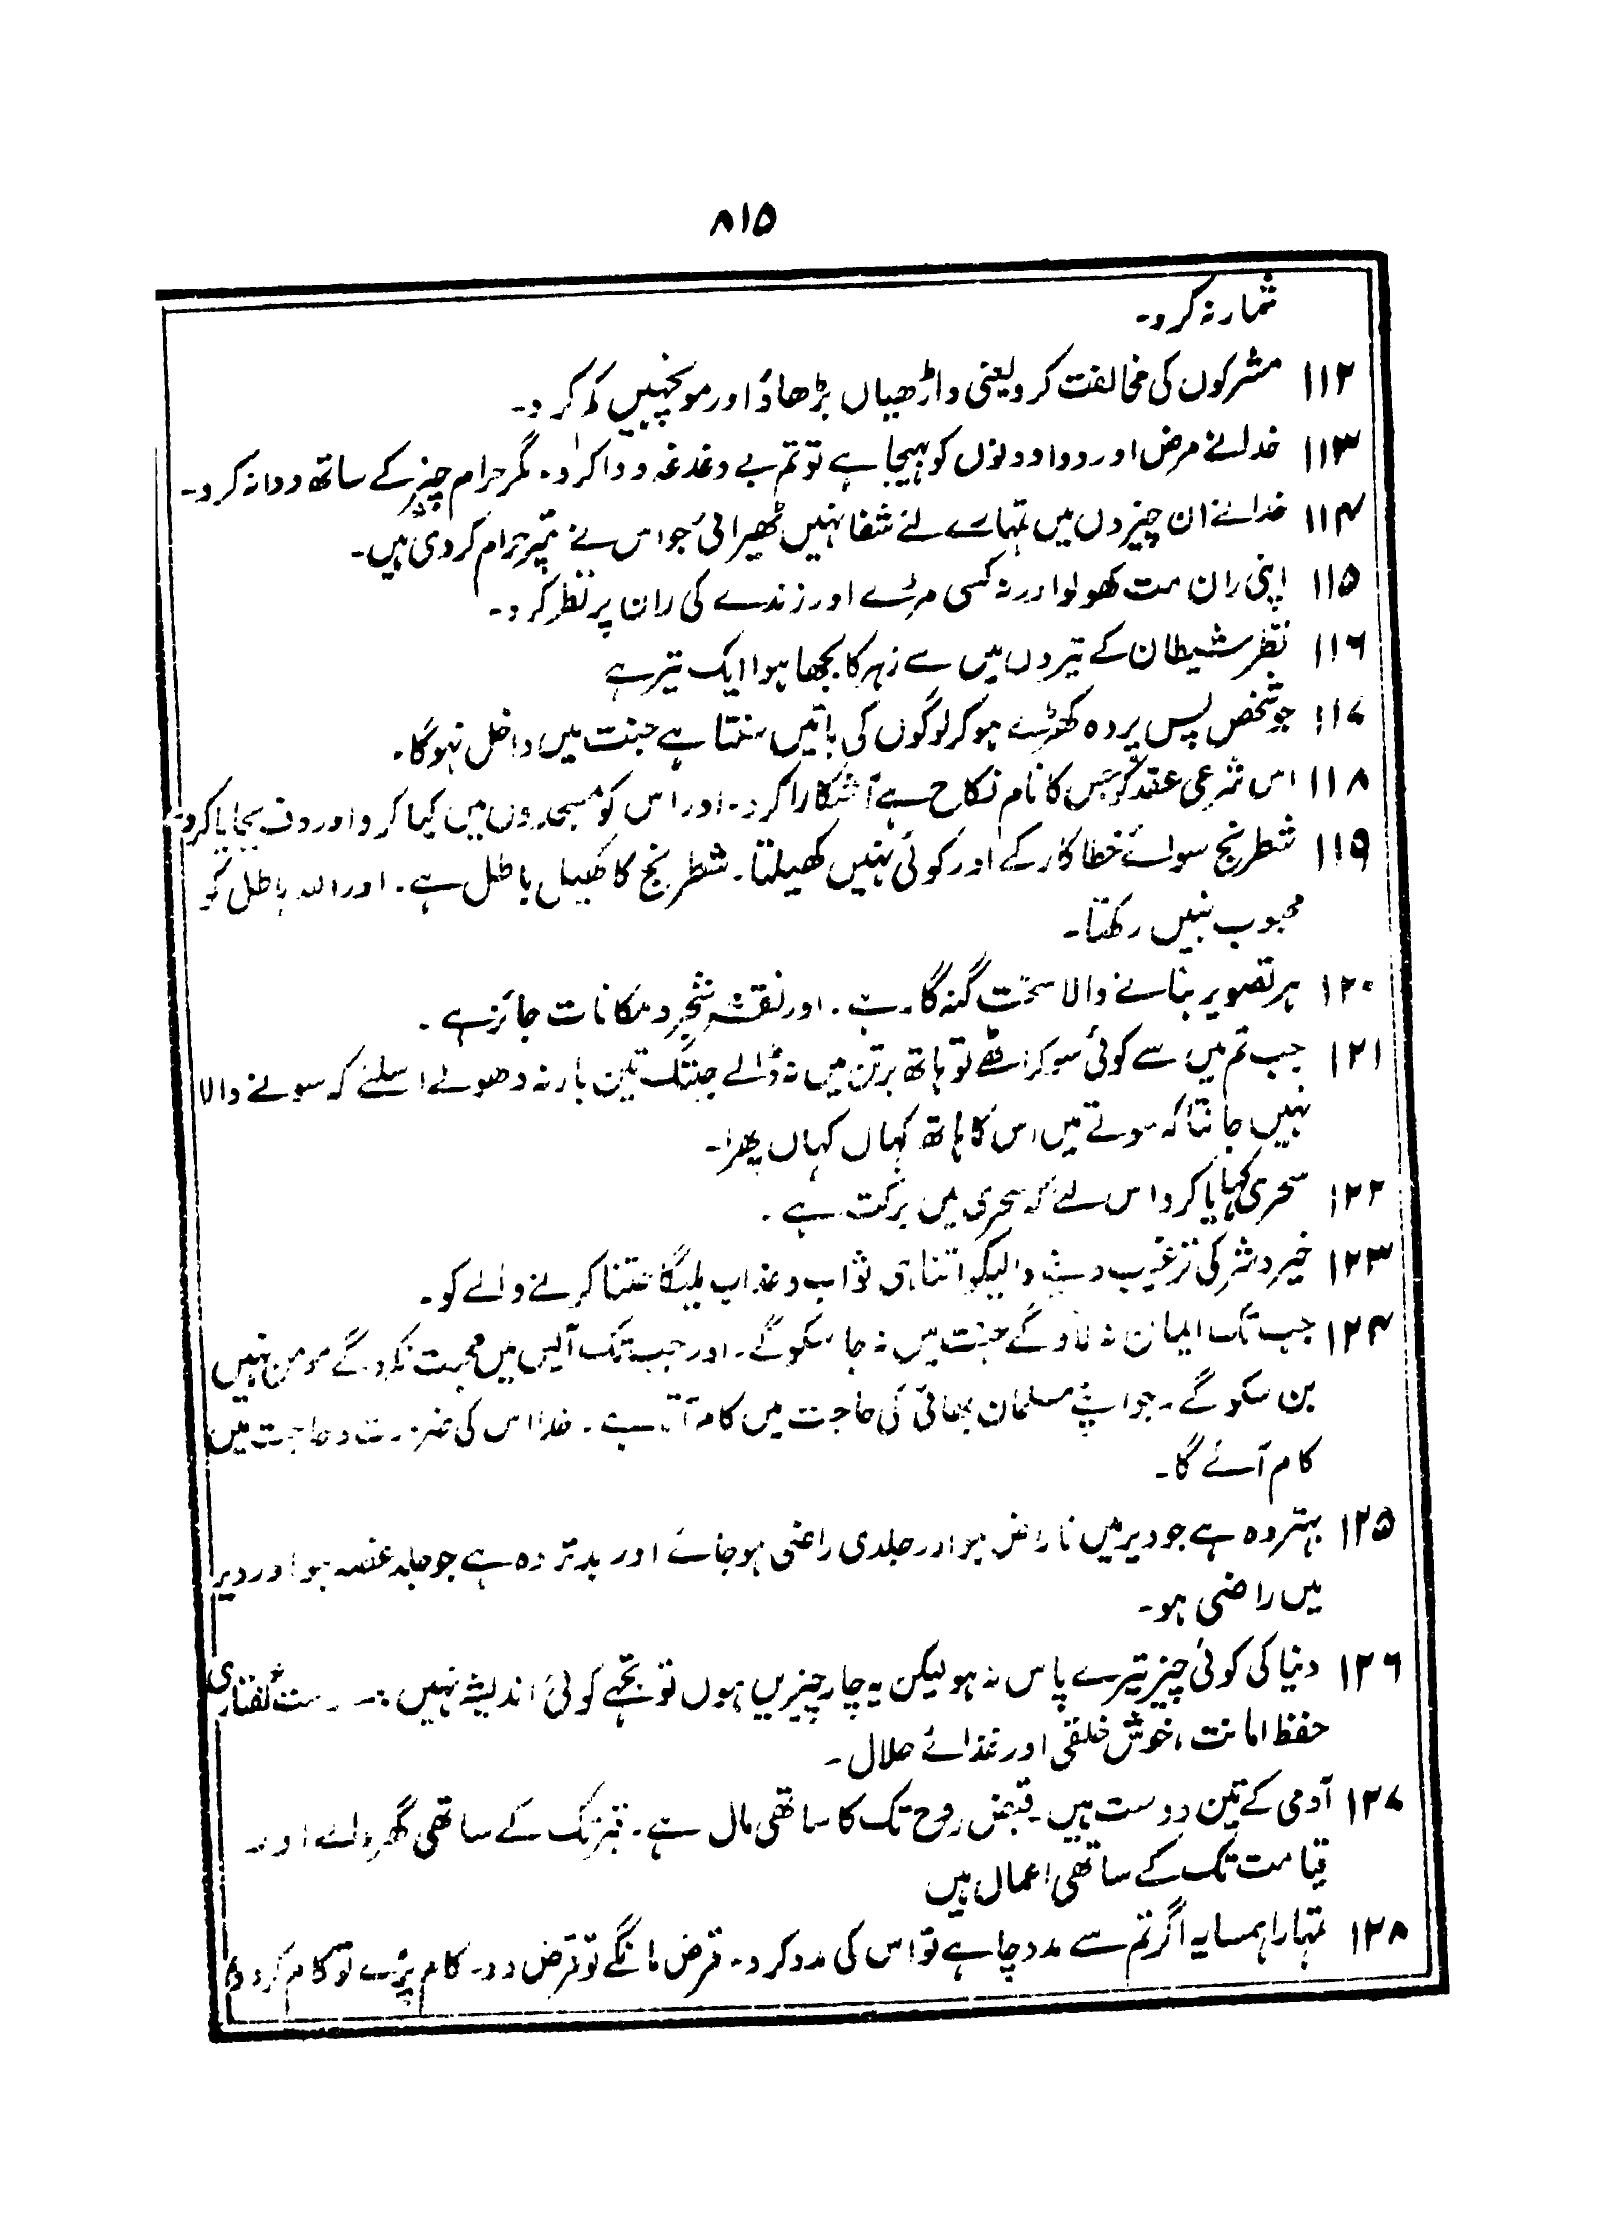 ۸۱۵
شمار نہ کرو۔
۱۱۲ مشرکوں کی مخالفت کرو یعنی داڑھیاں بڑھاؤ اور مونچہیں کم کرو۔
۱۱۳ خدا نے مرض اور دوا دونوں کو بہیجا ہے تو تم بے دغدغہ دوا کرو۔ مگر حرام چیز کے ساتھ دوا نہ کرو۔
۱۱۴ خدا نے ان چیزوں میں تمہارے لئے شفا نہیں ٹھیرائی جو اس نے تمپر حرام کردی ہیں۔
۱۱۵ اپنی ران مت کھولو اور نہ کسی مردے اور زندے کی ران پر نظر کرو۔
۱۱۶ نظر شیطان کے تیروں میں سے زہر کا بجھا ہوا ایک تیر ہے
۱۱۷ جو شخص پس پردہ کھڑے ہو کر لوگوں کی باتیں سنتا ہے جنت میں داخل نہوگا۔
۱۱۸ اس شرعی عقد کو جس کا نام نکاح ہے آشکارا کرو۔ اور اس کو مسجدوں میں کیا کرو اور دف بجایا کرو۔
۱۱۹ شطرنج سوائے خطا کار کے اور کوئی نہیں کھیلتا۔ شطرنج کا کھیل باطل ہے۔ اور اللہ باطل کو
محبوب نہیں رکھتا۔
۱۲۰ ہر تصویر بنانے والا سخت گنہگار ہے۔ اور نقشہ شجر و مکانات جائز ہے۔
۱۲۱ جب تم میں سے کوئی سو کر اٹھے تو ہاتھ برتن میں نہ ڈالے جبتک تین بار نہ دھولے اسلئے کہ سونے والا
نہیں جانتا کہ سوتے میں اس کا ہاتھ کہاں کہاں پھرا۔
۱۲۲ سحری کہایا کرو اس لئے کہ سحری میں برکت ہے۔
۱۲۳ خیر و شر کی ترغیب دینے والیکو اتنا ہی ثواب و عذاب ملیگا جتنا کرنے والے کو۔
۱۲۴ جب تک ایمان نہ لاؤ گے جنت میں نہ جا سکو گے۔ اور جب تک آپس میں محبت نکرو گے مومن نہیں
بن سکو گے۔ جو اپنے مسلمان بھائی کی حاجت میں کام آتا ہے۔ خدا اس کی ضرورت و حاجت میں
کام آئے گا۔
۱۲۵ بہتر وہ ہے جو دیر میں ناراض ہو اور جلدی راضی ہو جائے اور بدتر وہ ہے جو جلد غصہ ہو اور دیر
میں راضی ہو۔
۱۲۶ دنیا کی کوئی چیز تیرے پاس نہ ہو لیکن یہ چار چیزیں ہوں تو تجہے کوئی اندیشہ نہیں ہے۔ راست گفتاری
حفظ امانت، خوش خلقی اور غذائے حلال۔
۱۲۷ آدمی کے تین دوست ہیں۔ قبض روح تک کا ساتھی مال ہے۔ قبر تک کے ساتھی گھر والے اور
قیامت تک کے ساتھی اعمال ہیں
۱۲۸ تمہارا ہمسایہ اگر تم سے مدد چاہے تو اس کی مدد کرو۔ قرض مانگے تو قرض دو۔ کام پڑے تو کام کردو